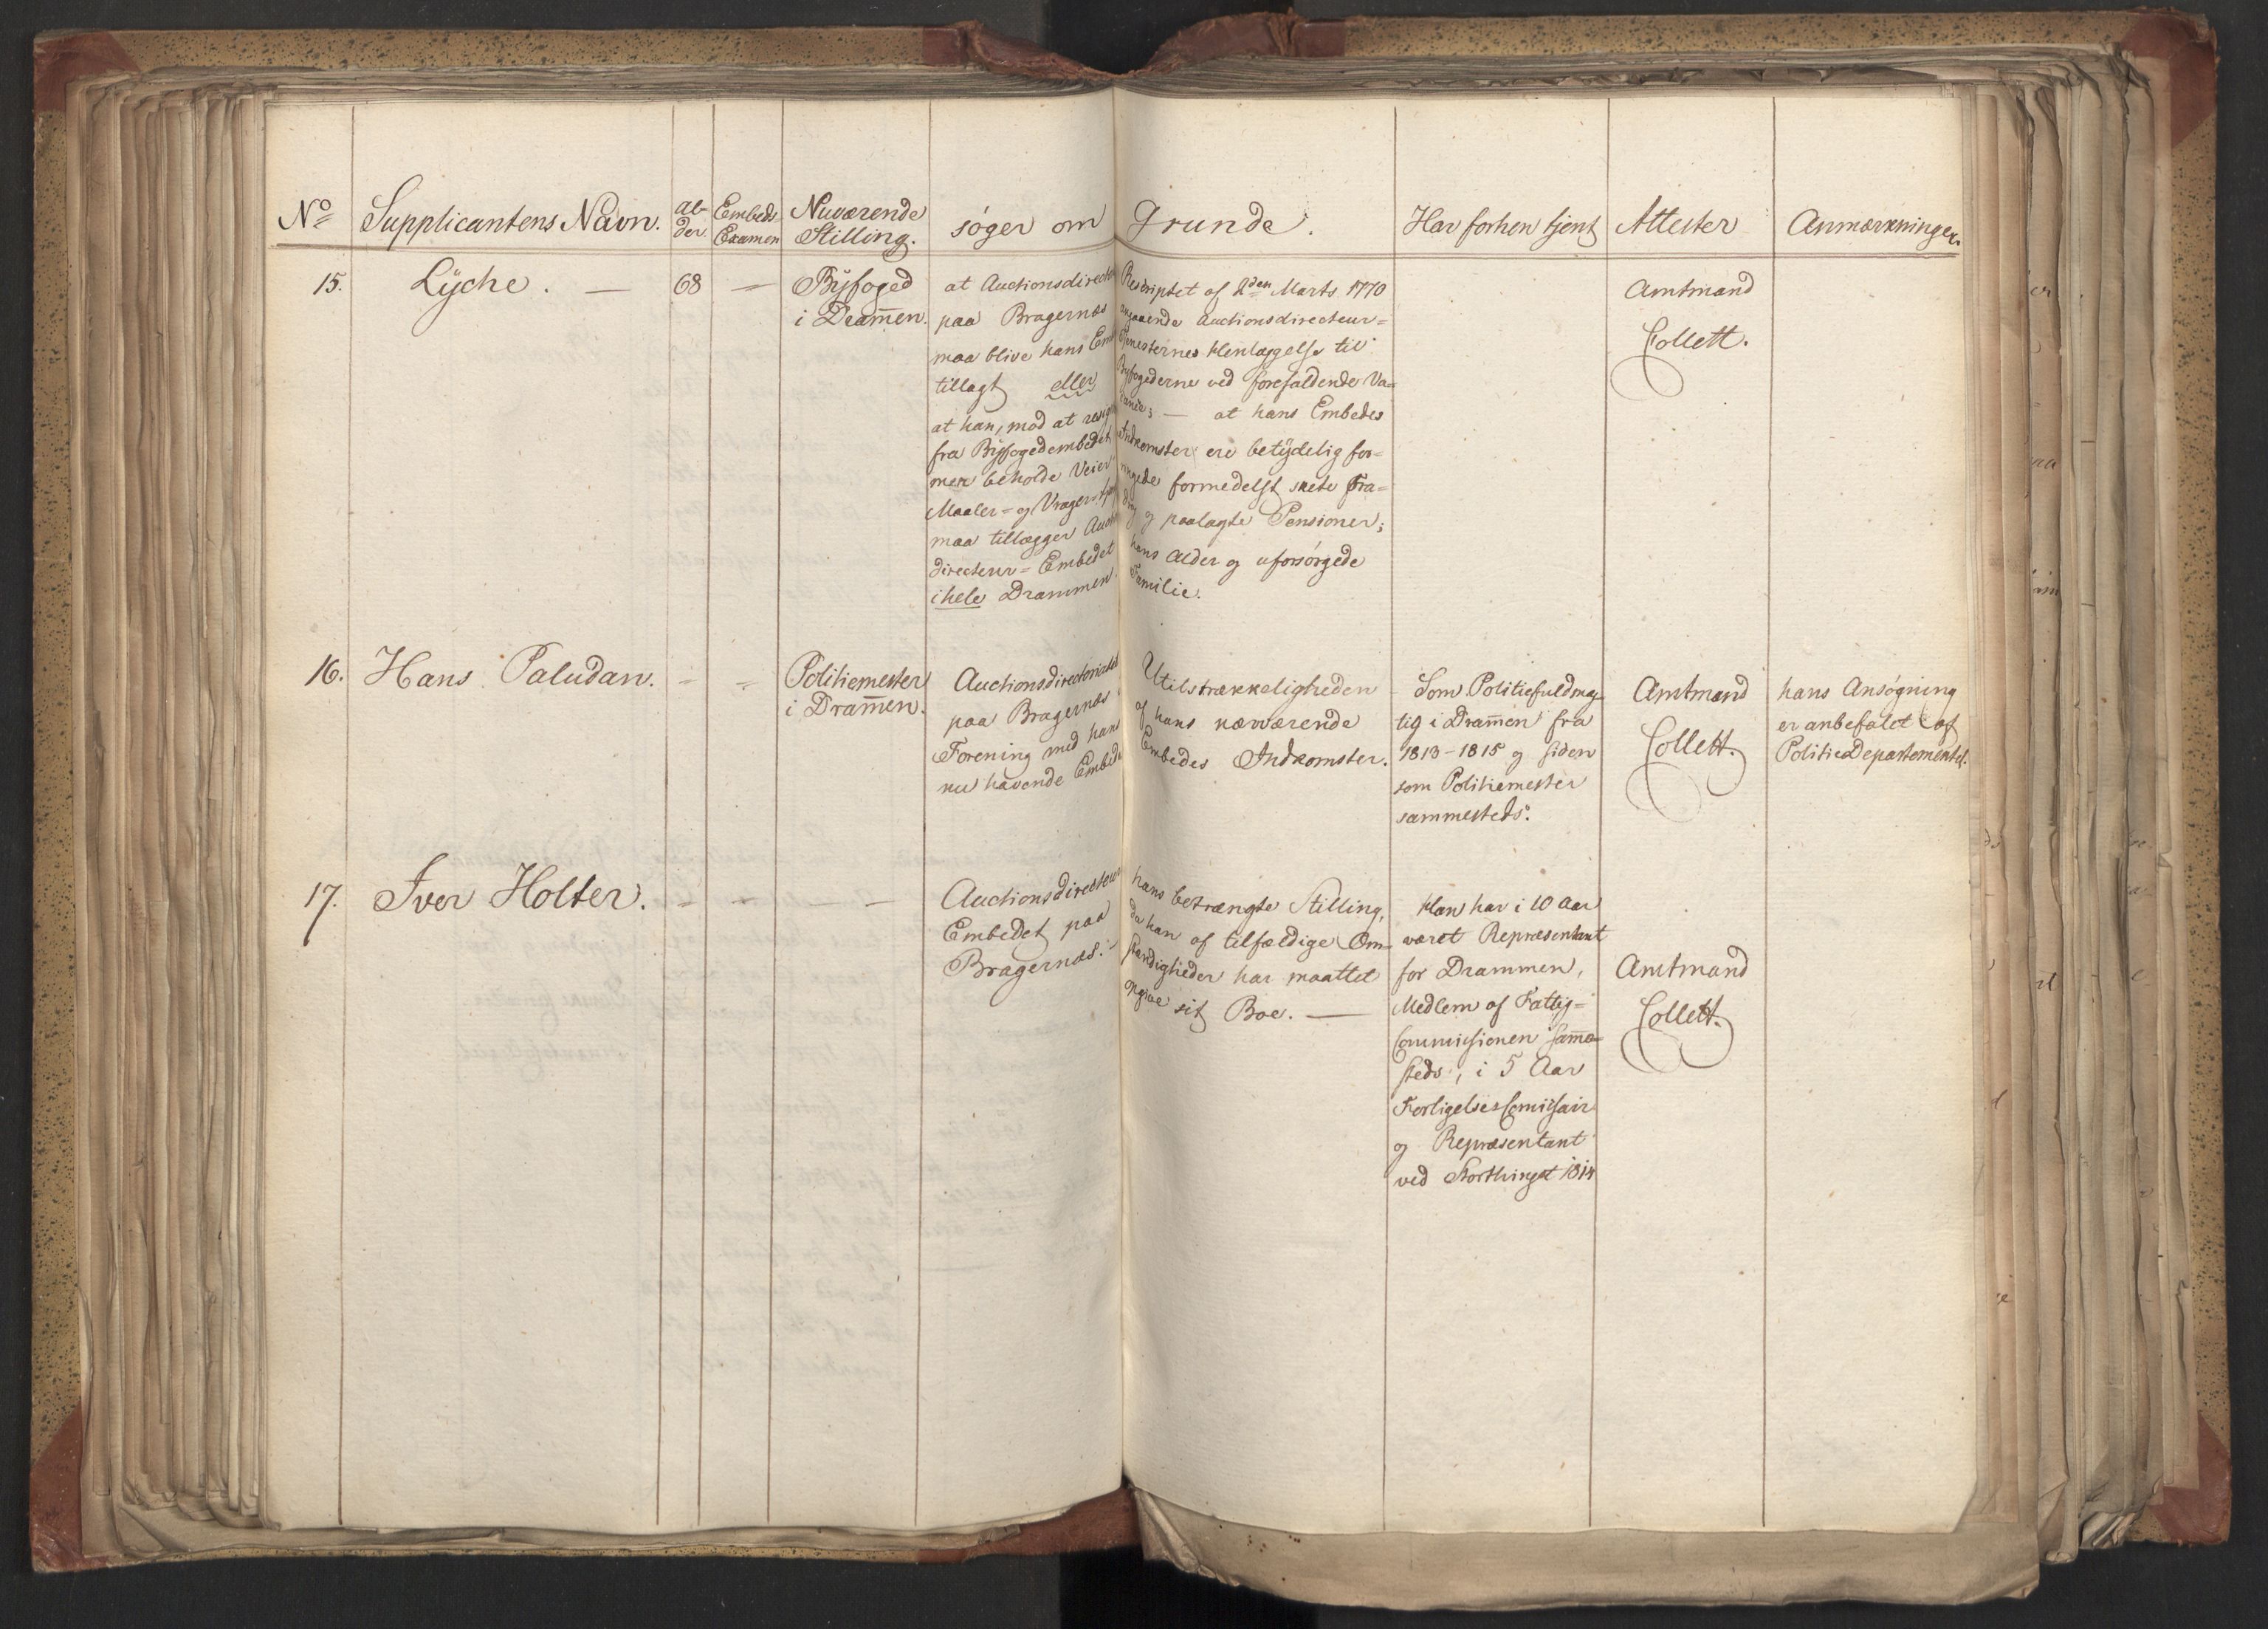 No Supplicantens Navn. Al- Embeds Nuværende søger om Grunde. Har forhen tjent Attester Anmærkninger.
der. Examen Stilling.
15. Lÿche. — 68 — Bÿfoged
i Dram̄en.
at Auctionsdirect
paa Bragernæs
maa blive hans Em
tillagt eller
at han, mod at resig
fra Bÿfogedembedet
men beholde Veier
Maaler- og Vrager
maa tillægges Auct
directeur- Embedet
i hele Drammen
Rescriptet af 2den Marts 1770
angaaende Auctionsdirecteur-
Tjenesternes Henlæggelse til
Byfogederne ved forefaldende Va-
cance; — at hans Embedes
Indkomster ere betÿdelig for-
ringede formedelst skete Fra-
og paalagte Pensioner;
hans Alder og uforsørgede
Familie.
Amtmand
Collett.
16. Hans Paludan. - - Politiemester
i Dram̄en.
Auctionsdirectoriatet
paa Bragernæs i
Forening med hans
nu havende Embede
Utilstrækkeligheden
af hans nærværende
Embedes Indkomster.
Som Politiefuldmæg-
tig i Dram̄en fra
1813-1815 og siden
som Politiemester
sammesteds.
Amtmand
Collett.
hans Ansøgning
er anbefalet af
PolitieDepartementet.
17. Iver Holter. - - - —
Auctionsdirecteur
Embedet paa
Bragernæs.
hans betrængte Stilling,
da han af tilfældige Om-
stændigheder har maattet
opgive sit Boe. —
Han har i 10 Aar
været Repræsentant
for Drammen,
Medlem af Fattig-
Commissionen sam̄e-
steds, i 5 Aar
ForligelsesCom̄issair
og Repræsentant
ved Storthinget 1814
Amtmand
Collett.